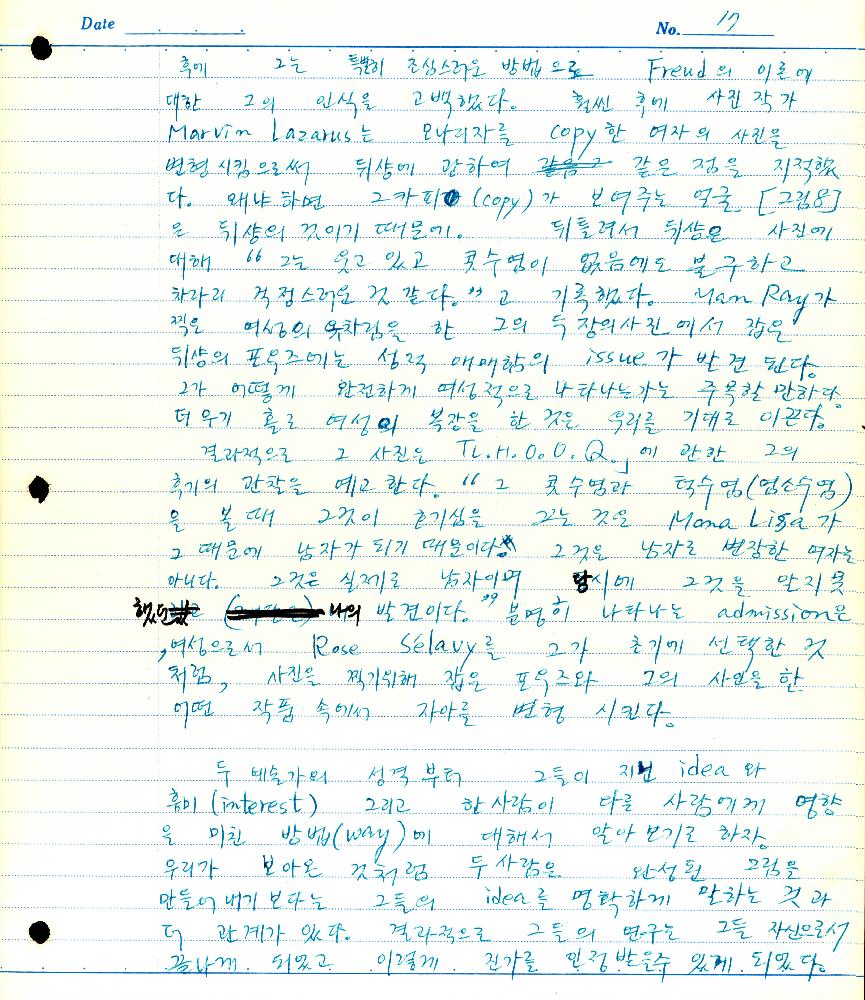 Date
No. 17
후에 그는 특별히 조심스러운 방법으로 Freud의 이론에
대한 그의 인식을 고백했다. 훨씬 후에 사진 작가
Marvin Lazarus는 모나리자를 copy한 여자의 사진을
변형시킴으로써 뒤샹에 관하여 같은 점을 지적했
다. 왜냐하면 그카피 (copy)가 보여주는 얼굴 [그림8]
은 뒤샹의 것이기 때문에. 뒤틀려서 뒤샹은 사진에
대해 "그는 웃고 있고 콧수염이 없음에도 불구하고
차라리 걱정스러운 것 같다." 고 기록했다. Man Ray가
찍은 여성의 옷차림을 한 그의 두 장의 사진에서 잡은
뒤샹의 포우즈에는 성적 애매함의 issue가 발견 된다.
그가 어떻게 완전하게 여성적으로 나타나는가는 주목할 만하다.
더우기 홀로 여성의 복장을 한 것은 우리를 기대로 이끈다.
결과적으로 그 사진은 「L.H.O.O.Q.」에 관한 그의
후기의 관찰을 예고한다. "그 콧수염과 턱수염(염소수염)
을 볼 때 그것이 호기심을 끄는 것은 Mona Lisa가
그 때문에 남자가 되기 때문이다. 그것은 남자로 변장한 여자는
아니다. 그것은 실제로 남자이며 당시에 그것을 알지 못
했던 나의 발견이다." 분명히 나타나는 admission은
, 여성으로서 Rose Sélavy를 그가 초기에 선택한 것
처럼, 사진을 찍기위해 잡은 포우즈와 그의 사인을 한
어떤 작품 속에서 자아를 변형 시킨다.
두 예술가의 성격부터 그들이 지닌 idea와
흥미(interest) 그리고 한 사람이 다른 사람에게 영향
을 미친 방법(way)에 대해서 알아보기로 하자.
우리가 보아온 것처럼 두 사람은 완성된 그림을
만들어내기 보다는 그들의 idea를 명확하게 말하는 것과
더 관계가 있다. 결과적으로 그들의 연구는 그들 자신으로서
끝나게 되었고 이렇게 진가를 인정받을수 있게 되었다.